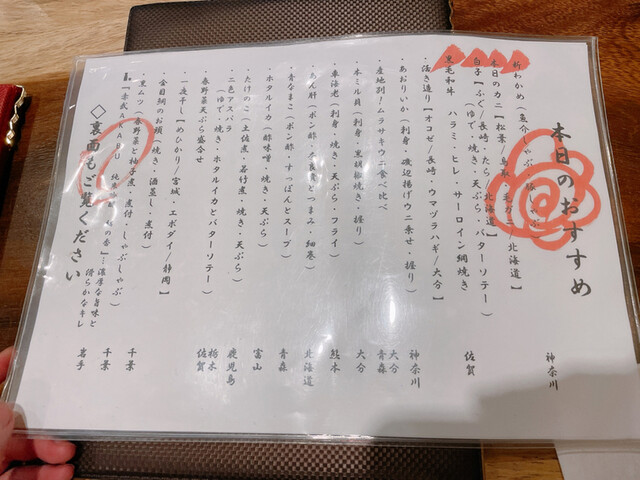 本日のおすすめ
・新わかめ(魚介しゃぶ・豚しゃぶ) 神奈川
・本日のカニ【松葉/鳥取・毛ガニ/北海道】
・白子【ふぐ/長崎・たら/北海道】
(ゆで・焼き・天ぷら・バターソテー)
・黒毛和牛 ハラミ・ヒレ・サーロイン網焼き 佐賀
・活き造り【オコゼ/長崎・ウマヅラハギ/大分】
・あおりいか(刺身・磯辺揚げウニ乗せ・握り) 神奈川
・産地別!ムラサキウニ食べ比べ 大分 青森
・本ミル貝(刺身・黒胡椒焼き・握り) 大分
・車海老(刺身・焼き・天ぷら・フライ) 熊本
・あん肝(ポン酢・奈良漬とつまみ・細巻) 北海道
・青なまこ(ポン酢・すっぽんとスープ) 青森
・ホタルイカ(酢味噌・焼き・天ぷら) 富山
・たけのこ(土佐煮・若竹煮・焼き・天ぷら) 鹿児島
・二色アスパラ 栃木 佐賀
(ゆで・焼き・ホタルイカとバターソテー)
・春野菜天ぷら盛合せ
・一夜干し【めひかり/宮城・エボダイ/静岡】
・金目鯛のお頭(焼き・酒蒸し・煮付) 千葉
・黒ムツ(春野菜と柚子煮・煮付・しゃぶしゃぶ) 千葉
『赤武AKABU 純米 の香』…濃厚な旨味と 滑らかなキレ 岩手
◇裏面もご覧ください